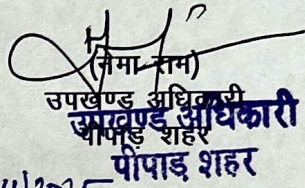 (नेमा राम)
उपखण्ड अधिकारी
पीपाड़ शहर
उपखण्ड अधिकारी
पीपाड़ शहर